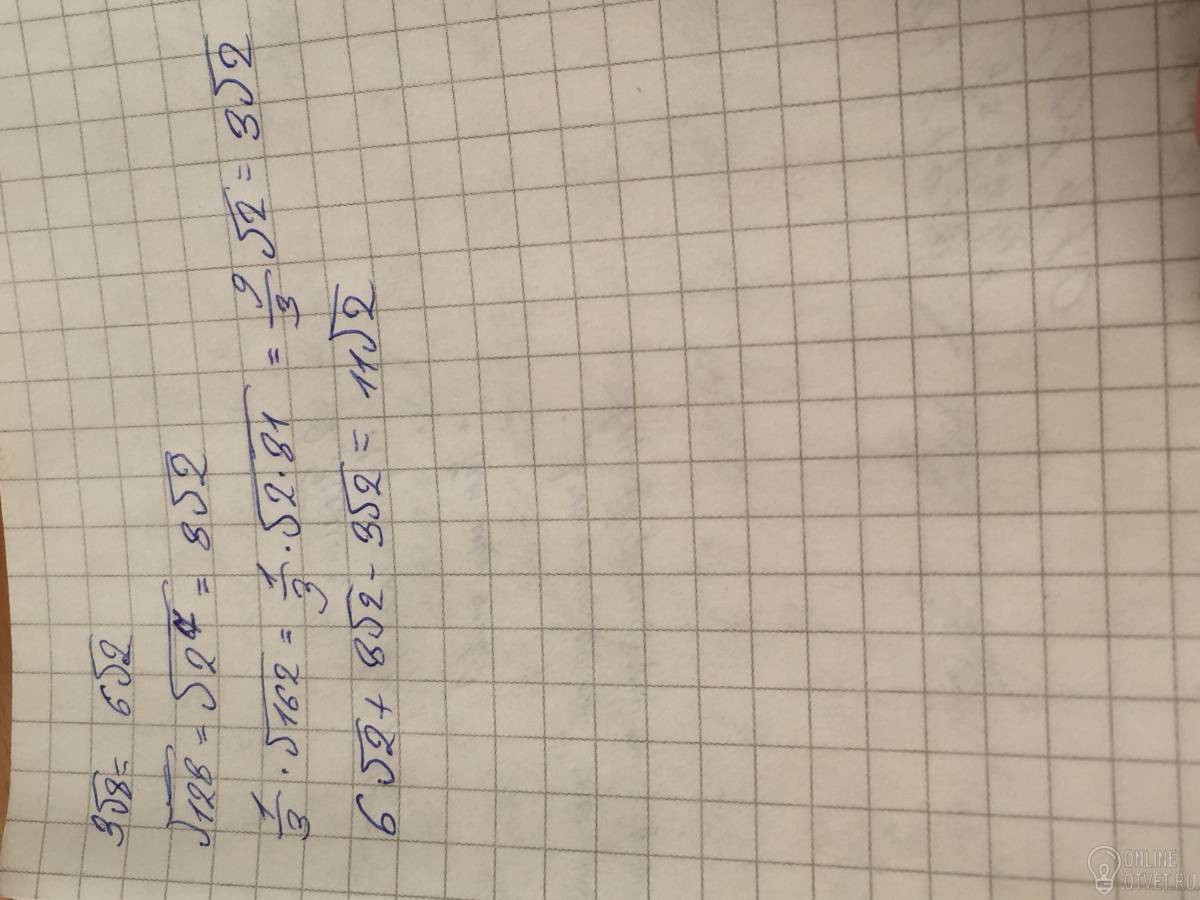 3√8 = 6√2
√128 = √2⁷ = 8√2
1/3 · √162 = 1/3 · √2·81 = 9/3 √2 = 3√2
6√2 + 8√2 - 3√2 = 11√2
ONLINE
OTVET.RU